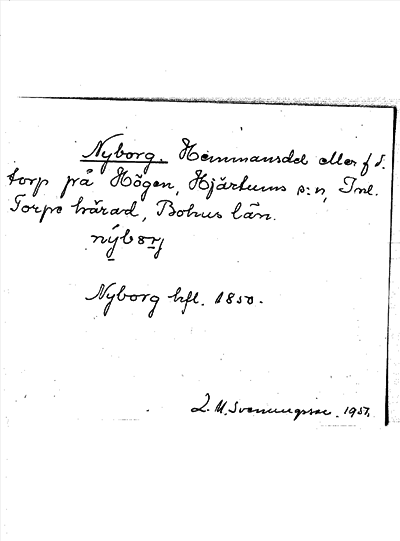 Nyborg. Hemmansdel eller f d.
torp på Högen, Hjärtums s:n, Inl.
Torpe härad, Bohus län.
nýbørj
Nyborg hfl. 1850.
L. M. Svenungsson. 1957.